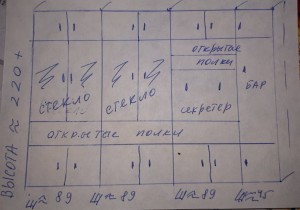 ВЫСОТА ≈ 220+
открытые
полки
стекло
стекло
секретер
БАР
открытые полки
Ш≈89
Ш≈89
Ш≈89
Ш≈45